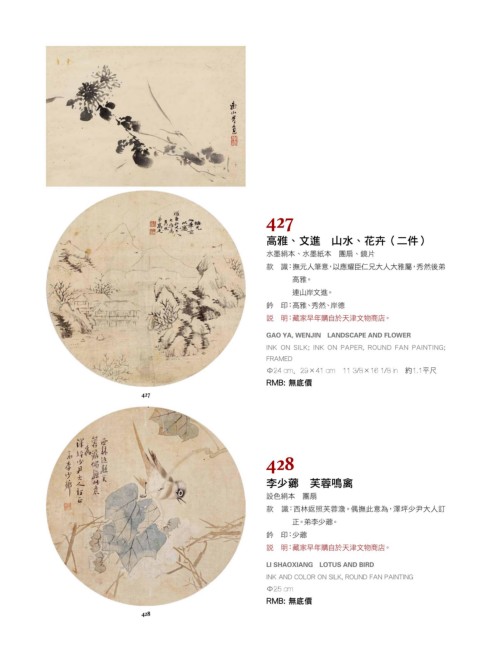 427
高雅、文進　山水、花卉（二件）
水墨絹本、水墨紙本　團扇、鏡片
款　識：撫元人筆意，以應耀臣仁兄大人大雅屬，秀然後弟
高雅。
連山岸文進。
鈐　印：高雅、秀然、岸德
説　明：藏家早年購自於天津文物商店。
GAO YA, WENJIN　LANDSCAPE AND FLOWER
INK ON SILK; INK ON PAPER, ROUND FAN PAINTING;
FRAMED
Φ24 cm,　29×41 cm　11 3/8×16 1/8 in　約1.1平尺
RMB: 無底價
427
428
李少薌　芙蓉鳴禽
設色絹本　團扇
款　識：西林返照芙蓉澹。偶撫此意為，澤坪少尹大人訂
正。弟李少薌。
鈐　印：少薌
説　明：藏家早年購自於天津文物商店。
LI SHAOXIANG　LOTUS AND BIRD
INK AND COLOR ON SILK, ROUND FAN PAINTING
Φ25 cm
RMB: 無底價
428